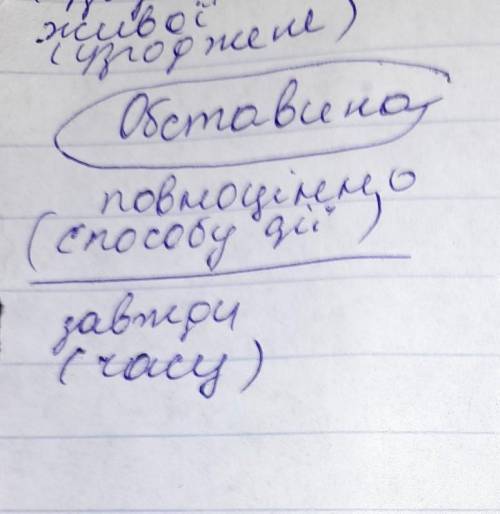 живої
(узгоджене)
Обставина
повноцінно
(способу дії)
завжди
(часу)